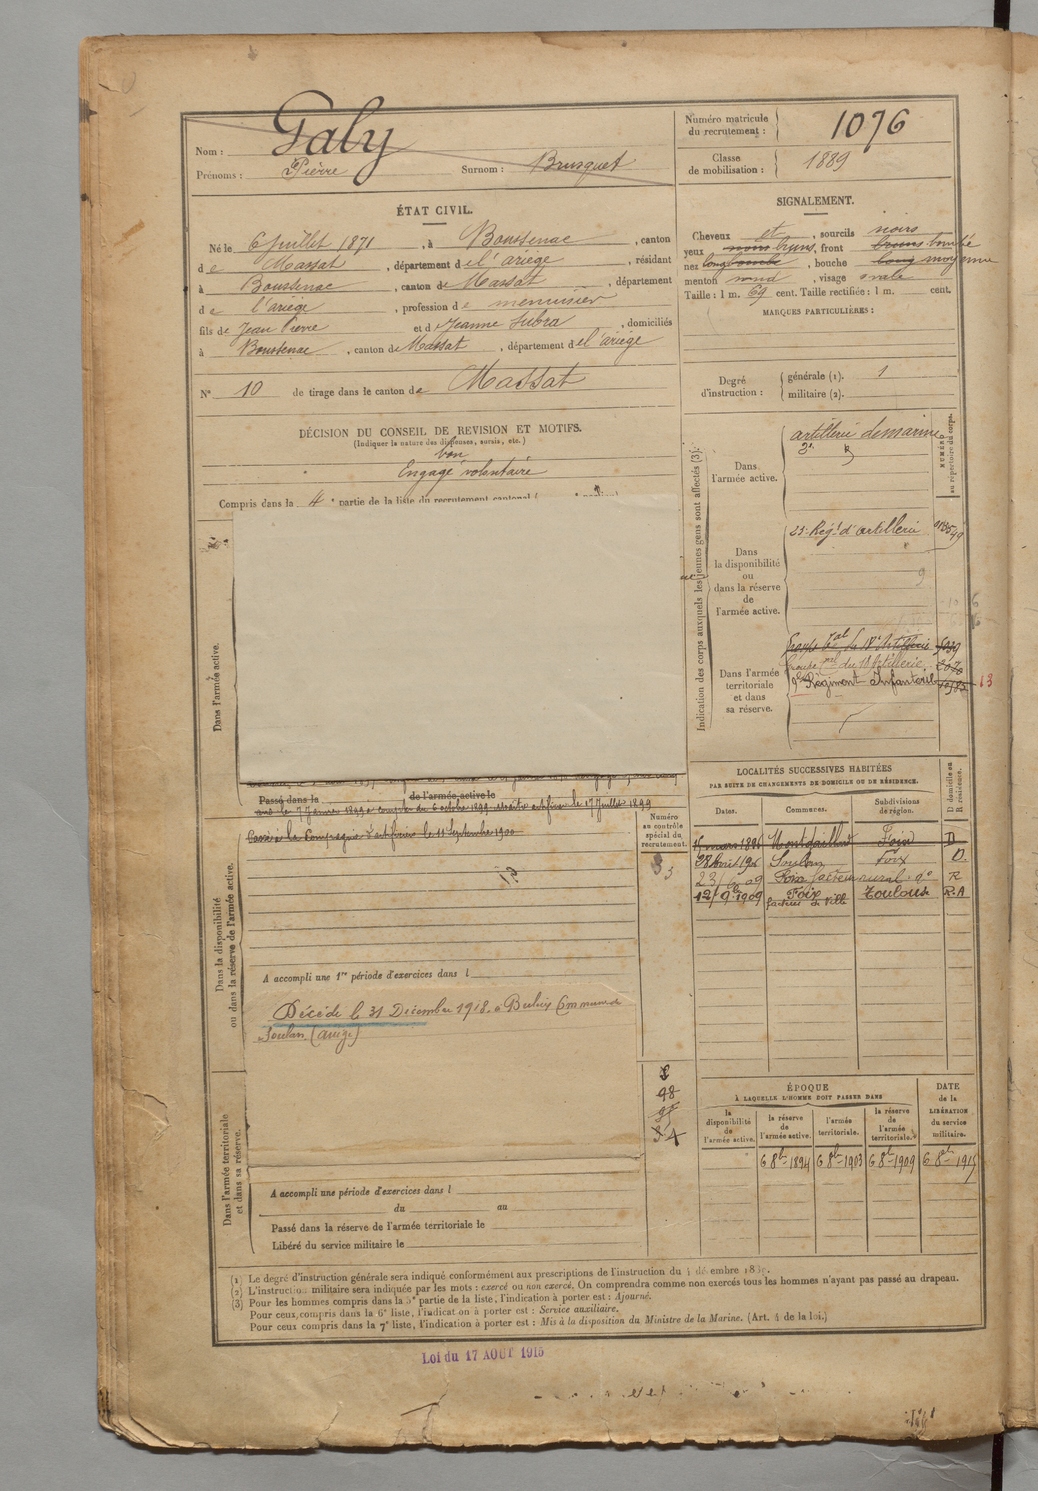 Nom : Galy
Prénoms : Pierre Surnom : Brusquet
Numéro matricule du recrutement : 1076
Classe de mobilisation : 1889
ÉTAT CIVIL.
Né le 6 juillet 1871, à Boussenac, canton
de Massat, département de l'ariège, résidant
à Boussenac, canton de Massat, département
de l'ariège, profession de menuisier
fils de Jean Pierre et d Jeanne Subra, domiciliés
à Boussenac, canton de Massat, département de l'ariège
N° 10 de tirage dans le canton de Massat
SIGNALEMENT.
Cheveux et, sourcils noirs
yeux noirs bruns, front bruns bombé
nez long bombé, bouche long moyenne
menton rond, visage ovale
Taille : 1 m. 69 cent. Taille rectifiée : 1 m. cent.
MARQUES PARTICULIÈRES :
Degré d'instruction : générale (1). 1
militaire (2).
DÉCISION DU CONSEIL DE REVISION ET MOTIFS.
(Indiquer la nature des dispenses, sursis, etc.)
bon
Engagé volontaire
Compris dans la 4e partie de la liste du recrutement cantonal
Indication des corps auxquels les jeunes gens sont affectés (3).
NUMÉRO au répertoire du corps.
Dans l'armée active.
artillerie de marine
Dans la disponibilité ou dans la réserve de l'armée active.
23e Régt d'artillerie
Dans l'armée territoriale et dans sa réserve.
Groupe tal du 18e Artillerie 5039
Groupe du 18 Artillerie
Régiment Infanterie 13
Dans l'armée active.
Passé dans la de l'armée active le
Cassé à la Compagnie d'artificiers le 11 Septembre 1900
Numéro au contrôle spécial du recrutement.
Dans la disponibilité ou dans la réserve de l'armée active.
A accompli une 1re période d'exercices dans l
Décédé le 31 Décembre 1918 à
Soulan (Ariège)
LOCALITÉS SUCCESSIVES HABITÉES
PAR SUITE DE CHANGEMENTS DE DOMICILE OU DE RÉSIDENCE.
Dates. Communes. Subdivisions de région. D domicile ou R résidence.
mars 1896 Montgaillard Foix D
28 Avril Soulan Foix D.
Foix facteur rural R
12/9 1909 Foix facteur de Ville Toulouse R.A
ÉPOQUE
À LAQUELLE L'HOMME DOIT PASSER DANS
la disponibilité de l'armée active.
la réserve de l'armée active.
l'armée territoriale.
la réserve de l'armée territoriale.
DATE de la LIBÉRATION du service militaire.
6 8bre 1894 6 8bre 1903 6 8bre 1909 6 8bre 1915
Dans l'armée territoriale et dans sa réserve.
A accompli une période d'exercices dans l
du au
Passé dans la réserve de l'armée territoriale le
Libéré du service militaire le
(1) Le degré d'instruction générale sera indiqué conformément aux prescriptions de l'instruction du
(2) L'instruction militaire sera indiquée par les mots : exercé ou non exercé. On comprendra comme non exercés tous les hommes n'ayant pas passé au drapeau.
(3) Pour les hommes compris dans la 5e partie de la liste, l'indication à porter est : Ajourné.
Pour ceux compris dans la 6e liste, l'indication à porter est : Service auxiliaire.
Pour ceux compris dans la 7e liste, l'indication à porter est : Mis à la disposition du Ministre de la Marine. (Art. 4 de la loi.)
Loi du 17 AOUT 1915